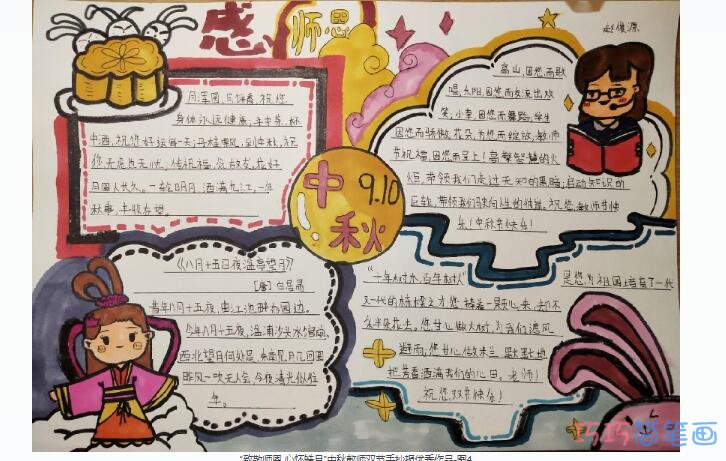 感师恩
赵俊源
月浑圆,月饼香,祝您
身体永远健康;
中酒,祝您好运每一天;
您无虑也无忧,传祝福,
月圆人长久。
秋事,丰收在望。
高山,因您而歌
唱,太阳,因您而发光出欢
笑,小草,因您而舞蹈,学生
因您而骄傲,花朵,为您而绽放,教师
节祝福,因您而呈上!高擎智慧的火
炬,带领我们走过无知的黑暗;启动知识的
巨敌,带领我们驶向胜的彼岸。祝您,教师节快
乐!中秋节快乐!
中秋
9.10
《八月十五日夜湓亭望月》
[唐]白居易
昔年八月十五夜,曲江池畔杏园边。
今年八月十五夜,湓浦沙头水馆前。
西北望乡何处是,东南见月几回圆
昨风一吹无人会,今夜清光似往
年。
"十年树木,百年树人"
是您为祖国培育了一代
又一代的栋梁之才您捧着一颗心来,却不
带半根草去。您甘心做大树,为我们遮风
避雨;您甘心做米兰,默默地
把芳香洒满我们的心田。老师!
祝您双节快乐!
巧巧简笔画
"致敬师恩 心怀皓月"中秋教师双节手抄报优秀作品-图4